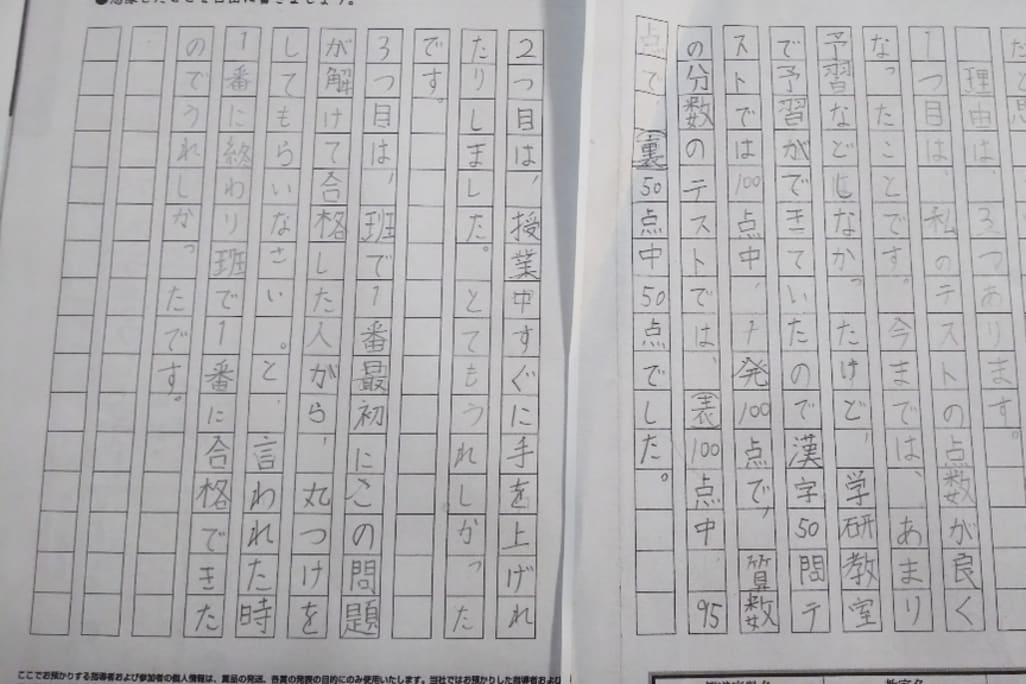 たと思
理由は、3つあります。
1つ目は、私のテストの点数が良く
なったことです。今までは、あまり
予習などしなかったけど、学研教室
で予習ができていたので漢字50問テ
ストでは100点中、1発100点で、算数
の分数のテストでは、表100点中95
点で、裏50点中50点でした。
2つ目は、授業中すぐに手を上げれ
たりしました。とてもうれしかった
です。
3つ目は、班で1番最初にこの問題
が解けて合格した人から、丸つけを
してもらいなさい。と、言われた時
1番に終わり班で1番に合格できた
のでうれしかったです。
ここでお預かりする指導者および参加者の個人情報は、賞品の発送、各賞の発表の目的にのみ使用いたします。当社ではお預かりした指導者および